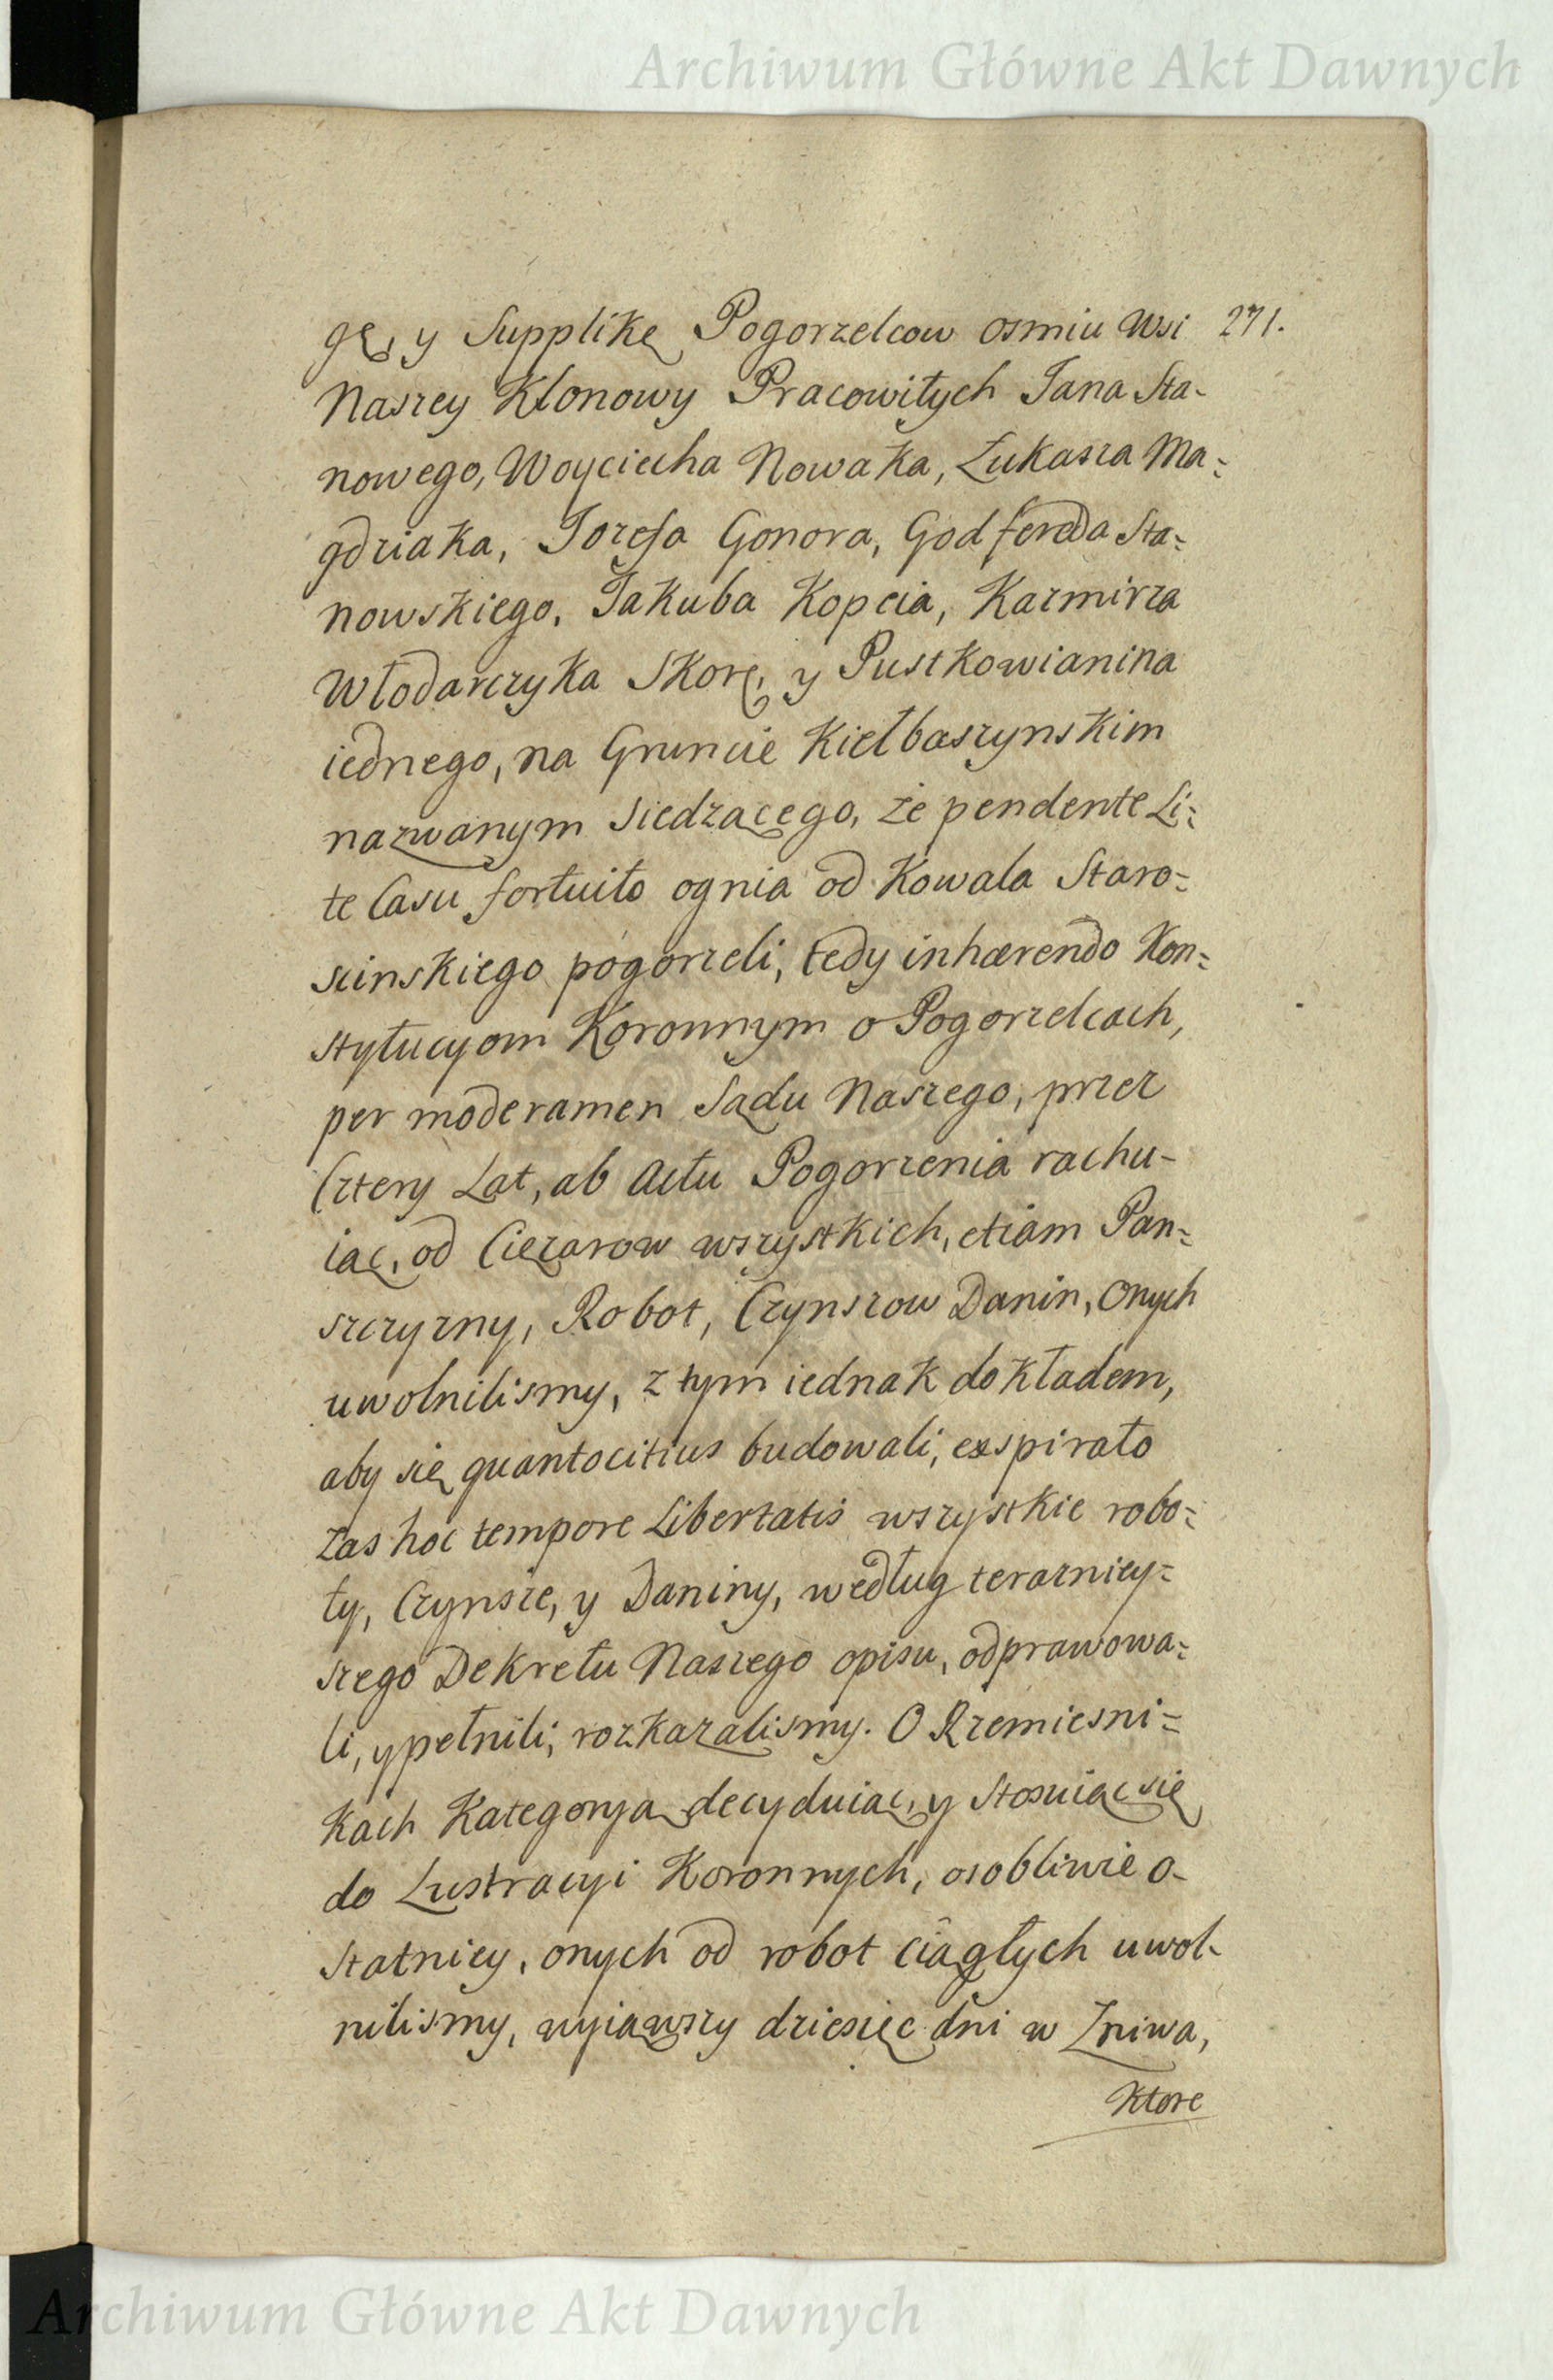 Archiwum Główne Akt Dawnych
gę, y Supplikę Pogorzelcow osmiu Wsi 271.
Naszey Klonowy Pracowitych Jana Sta-
nowego, Woyciecha Nowaka, Łukasza Ma=
gdziaka, Jozefa Gonora, Godfereda Sta=
nowskiego, Jakuba Kopcia, Kazmirza
Włodarczyka Skorę, y Pustkowianina
iednego, na Gruncie Kiełbaszynskim
nazwanym siedzącego, że pendente Li=
te Casu fortuito ognia od Kowala Staro=
scinskiego pogorzeli, tedy inhærendo Kon=
stytucyom Koronnym o Pogorzelcach,
per moderamen Sądu Naszego, przez
Cztery Lat, ab Actu Pogorzenia rachu-
iąc, od Cięzarow wszystkich, etiam Pan=
szczyzny, Robot, Czynszow Danin, Onych
uwolnilismy, z tym iednak dokładem,
aby się quantocitius budowali, exspirato
zas hoc tempore Libertatis wszystkie robo=
ty, Czynsze, y Daniny, według terazniey=
szego Dekretu Naszego opisu, odprawowa=
li, y pełnili, rozkazalismy. O Rzemiesni=
kach Kategoryą decyduiąc, y stosuiąc się
do Lustracyi Koronnych, osobliwie o-
statniey, onych od robot ciągłych uwol-
nilismy, wyiąwszy dziesięc dni w Zniwa,
ktore
Archiwum Główne Akt Dawnych